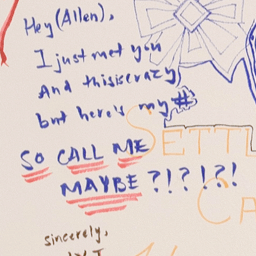 Hey (Allen),
I just met you
And thisiscrazy
but here's my #
SO CALL ME
MAYBE ?!?!?!
SETTL
CA
sincerely,